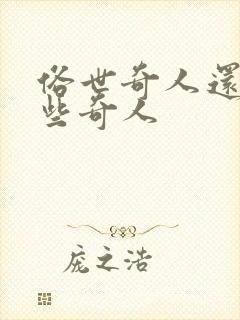 俗世奇人還
些奇人
庞之浩